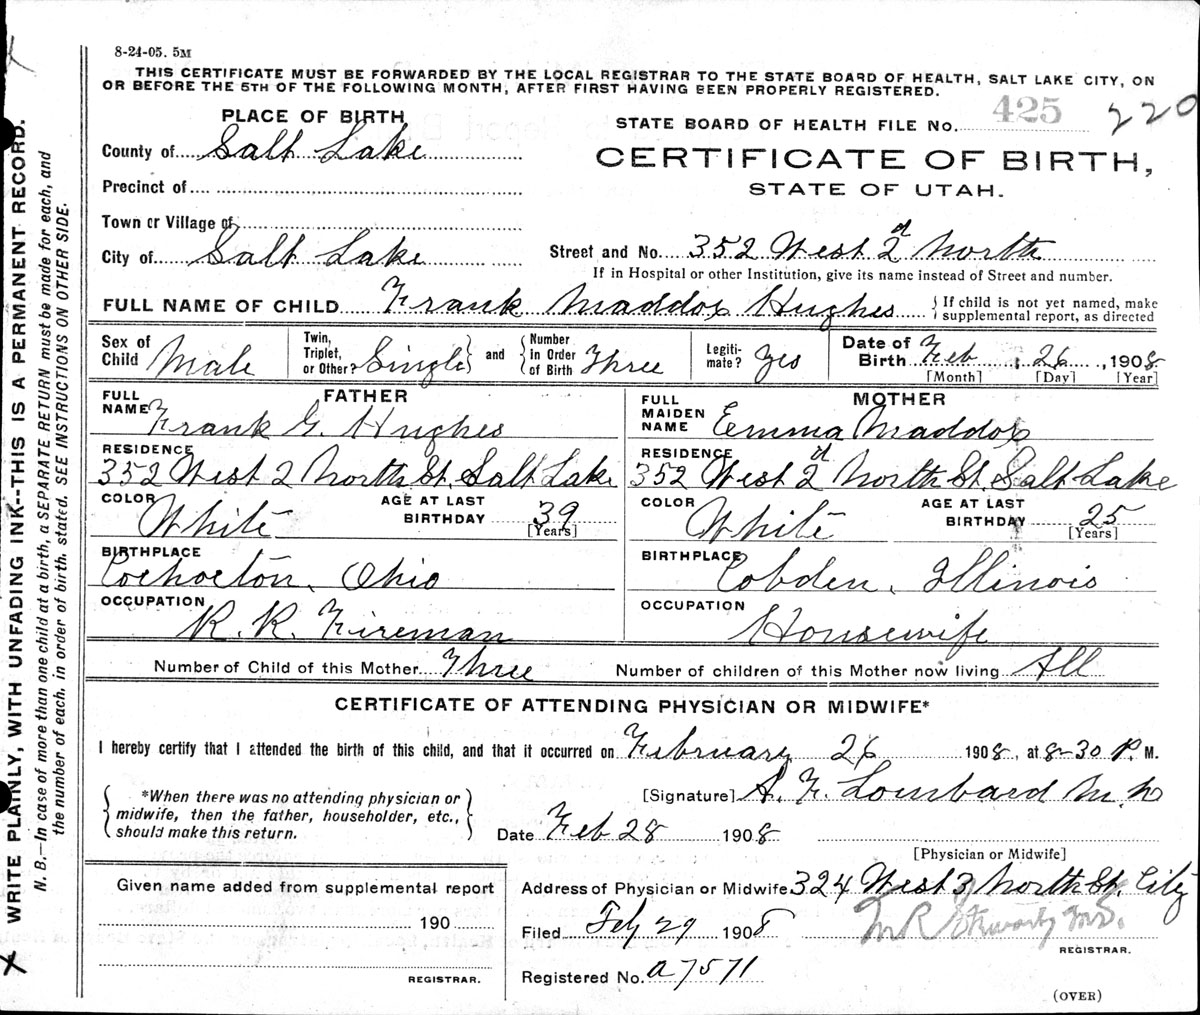 8-24-05. 5M
THIS CERTIFICATE MUST BE FORWARDED BY THE LOCAL REGISTRAR TO THE STATE BOARD OF HEALTH, SALT LAKE CITY, ON
OR BEFORE THE 5TH OF THE FOLLOWING MONTH, AFTER FIRST HAVING BEEN PROPERLY REGISTERED.
PLACE OF BIRTH
County of Salt Lake
Precinct of
Town or Village of
City of Salt Lake
STATE BOARD OF HEALTH FILE No. 425 220
CERTIFICATE OF BIRTH,
STATE OF UTAH.
Street and No. 352 West 2d North
If in Hospital or other Institution, give its name instead of Street and number.
FULL NAME OF CHILD Frank Maddox Hughes { If child is not yet named, make supplemental report, as directed
Sex of Child Male
Twin, Triplet, or Other? Single } and { Number in Order of Birth Three
Legitimate? Yes
Date of Birth Feb 26, 1908
[Month] [Day] [Year]
FATHER
FULL NAME Frank G. Hughes
RESIDENCE
352 West 2 North St. Salt Lake
COLOR White AGE AT LAST BIRTHDAY 39
[Years]
BIRTHPLACE
Cochocton, Ohio
OCCUPATION
R. R. Fireman
MOTHER
FULL MAIDEN NAME Emma Maddox
RESIDENCE
352 West 2d North St. Salt Lake
COLOR White AGE AT LAST BIRTHDAY 25
[Years]
BIRTHPLACE
Cobden, Illinois
OCCUPATION
Housewife
Number of Child of this Mother Three Number of children of this Mother now living All
CERTIFICATE OF ATTENDING PHYSICIAN OR MIDWIFE*
I hereby certify that I attended the birth of this child, and that it occurred on February 26 1908, at 8-30 P. M.
{ *When there was no attending physician or
midwife, then the father, householder, etc.,
should make this return. }
[Signature] A. F. Lombard M.D
Date Feb 28 1908
[Physician or Midwife]
Given name added from supplemental report
190
REGISTRAR.
Address of Physician or Midwife 324 West 3 North St. City
Filed Feby 29 1908 M R Stewart M.D.
REGISTRAR.
Registered No. a7571
(OVER)
WRITE PLAINLY, WITH UNFADING INK--THIS IS A PERMANENT RECORD.
N. B.—In case of more than one child at a birth, a SEPARATE RETURN must be made for each, and
the number of each, in order of birth, stated. SEE INSTRUCTIONS ON OTHER SIDE.